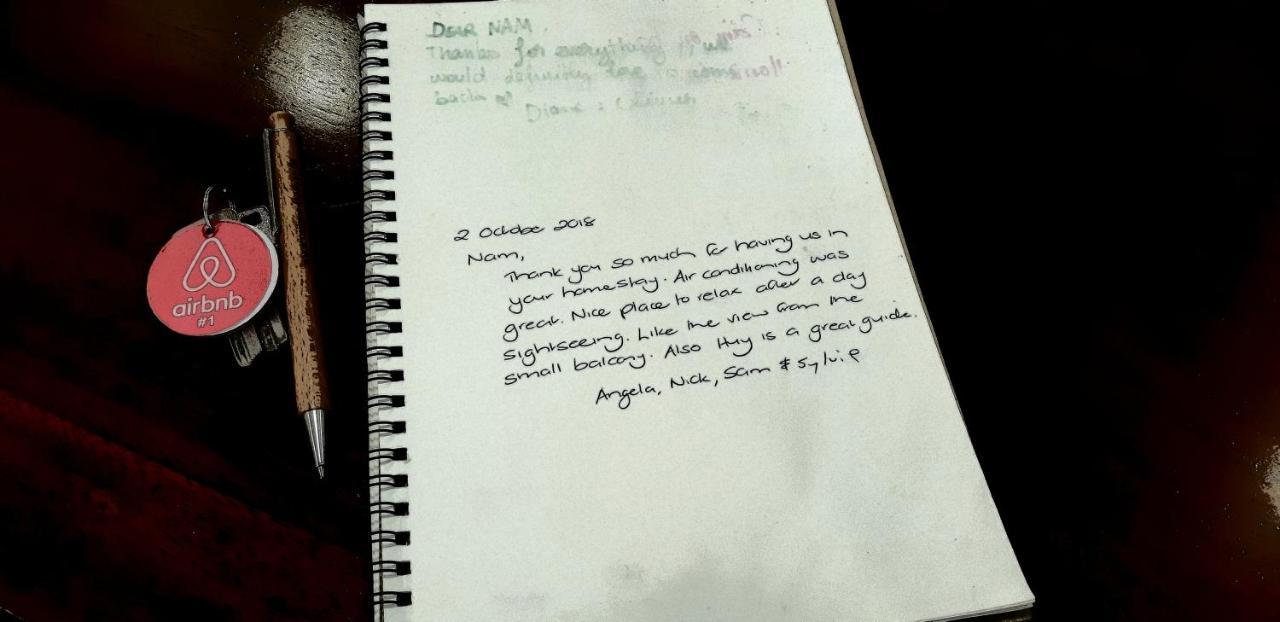 airbnb
#1
Dear NAM
Thanks for everything we
would definitely love to
back
2 Octobe 2018
Nam,
Thank you so much for having us in
your homestay. Air conditioning was
great. Nice place to relax after a day
sightseeing. Like the view from the
small balcony. Also Huy is a great guide.
Angela, Nick, Sam & Sylvie